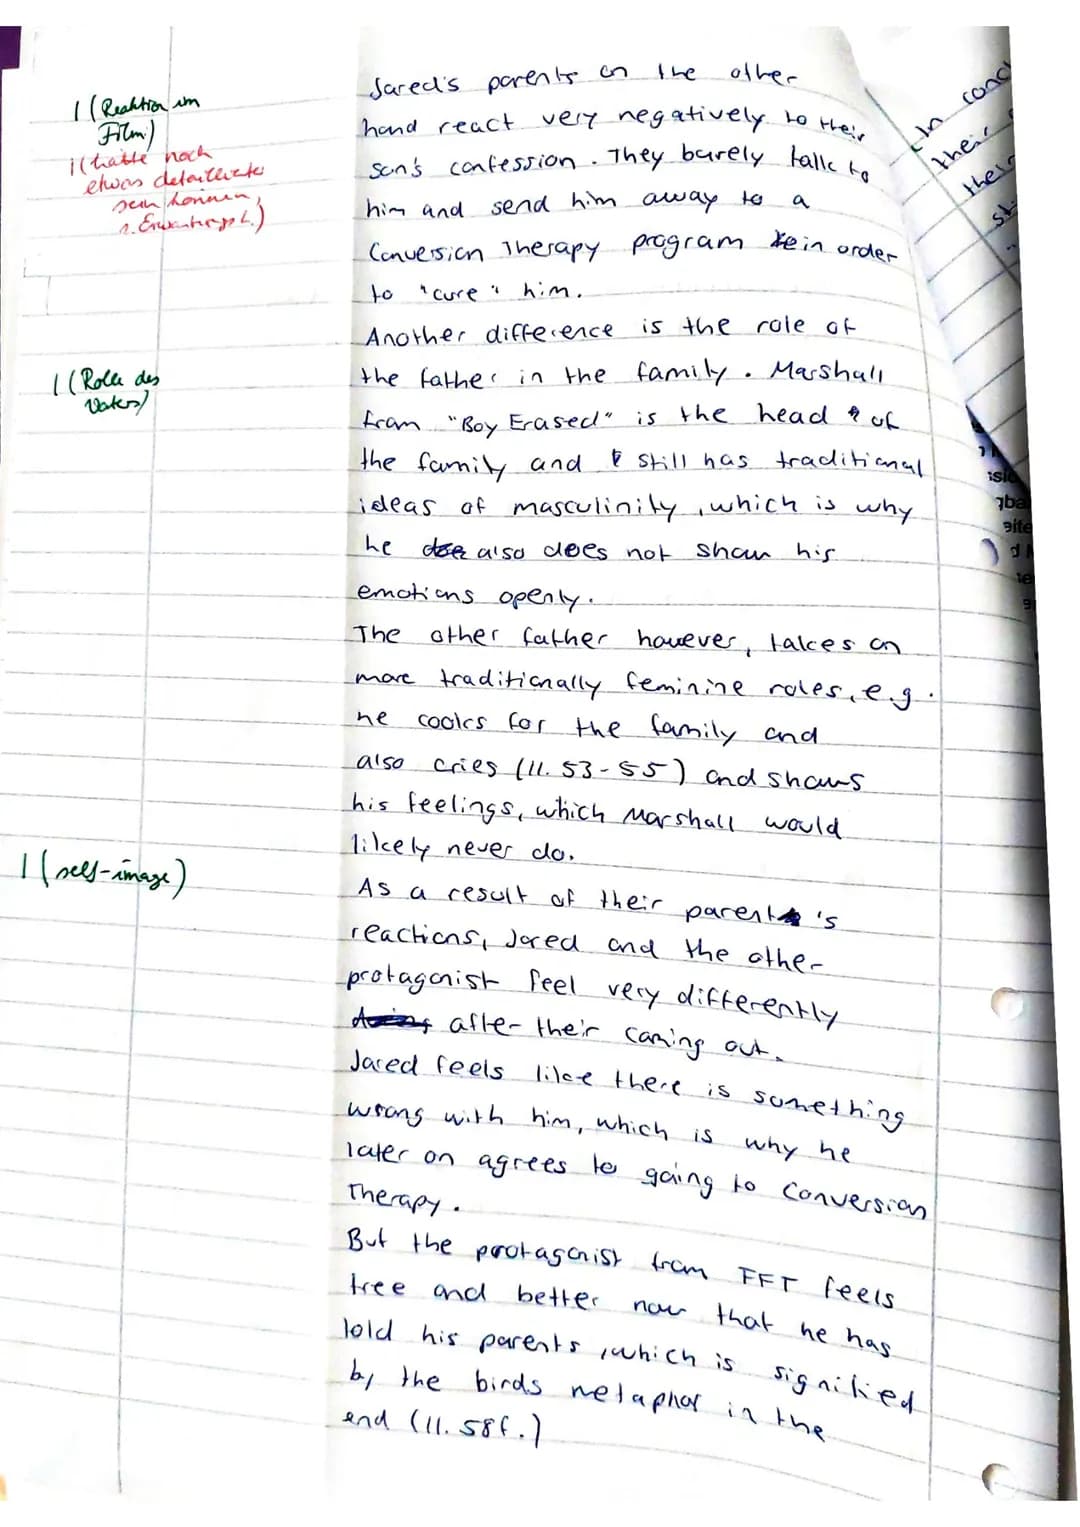 Jared's parents on the other
hand react very negatively to their
son's confession. They barely talk to
him and send him away to a
Conversion Therapy program in order
to "cure" him.
Another difference is the role of
the father in the family. Marshall
from "Boy Erased" is the head of
the family and still has traditional
ideas of masculinity, which is why
he also does not show his
emotions openly.
The other father however, takes on
more traditionally feminine roles, e.g.
he cooks for the family and
also cries (ll. 53-55) and shows
his feelings, which Marshall would
likely never do.
As a result of their parent's
reactions, Jared and the other
protagonist feel very differently
after their coming out.
Jared feels like there is something
wrong with him, which is why he
later on agrees to going to Conversion
Therapy.
But the protagonist from FFT feels
free and better now that he has
told his parents, which is signified
by the birds metaphor in the
end (ll. 58f.)
1 (Reaktion im
Film)
1 (hätte noch
etwas detaillierter
sein können,
s. Erwartungsh.)
1 (Rolle des
Vaters)
1 (self-image)
In conc
their
their
st